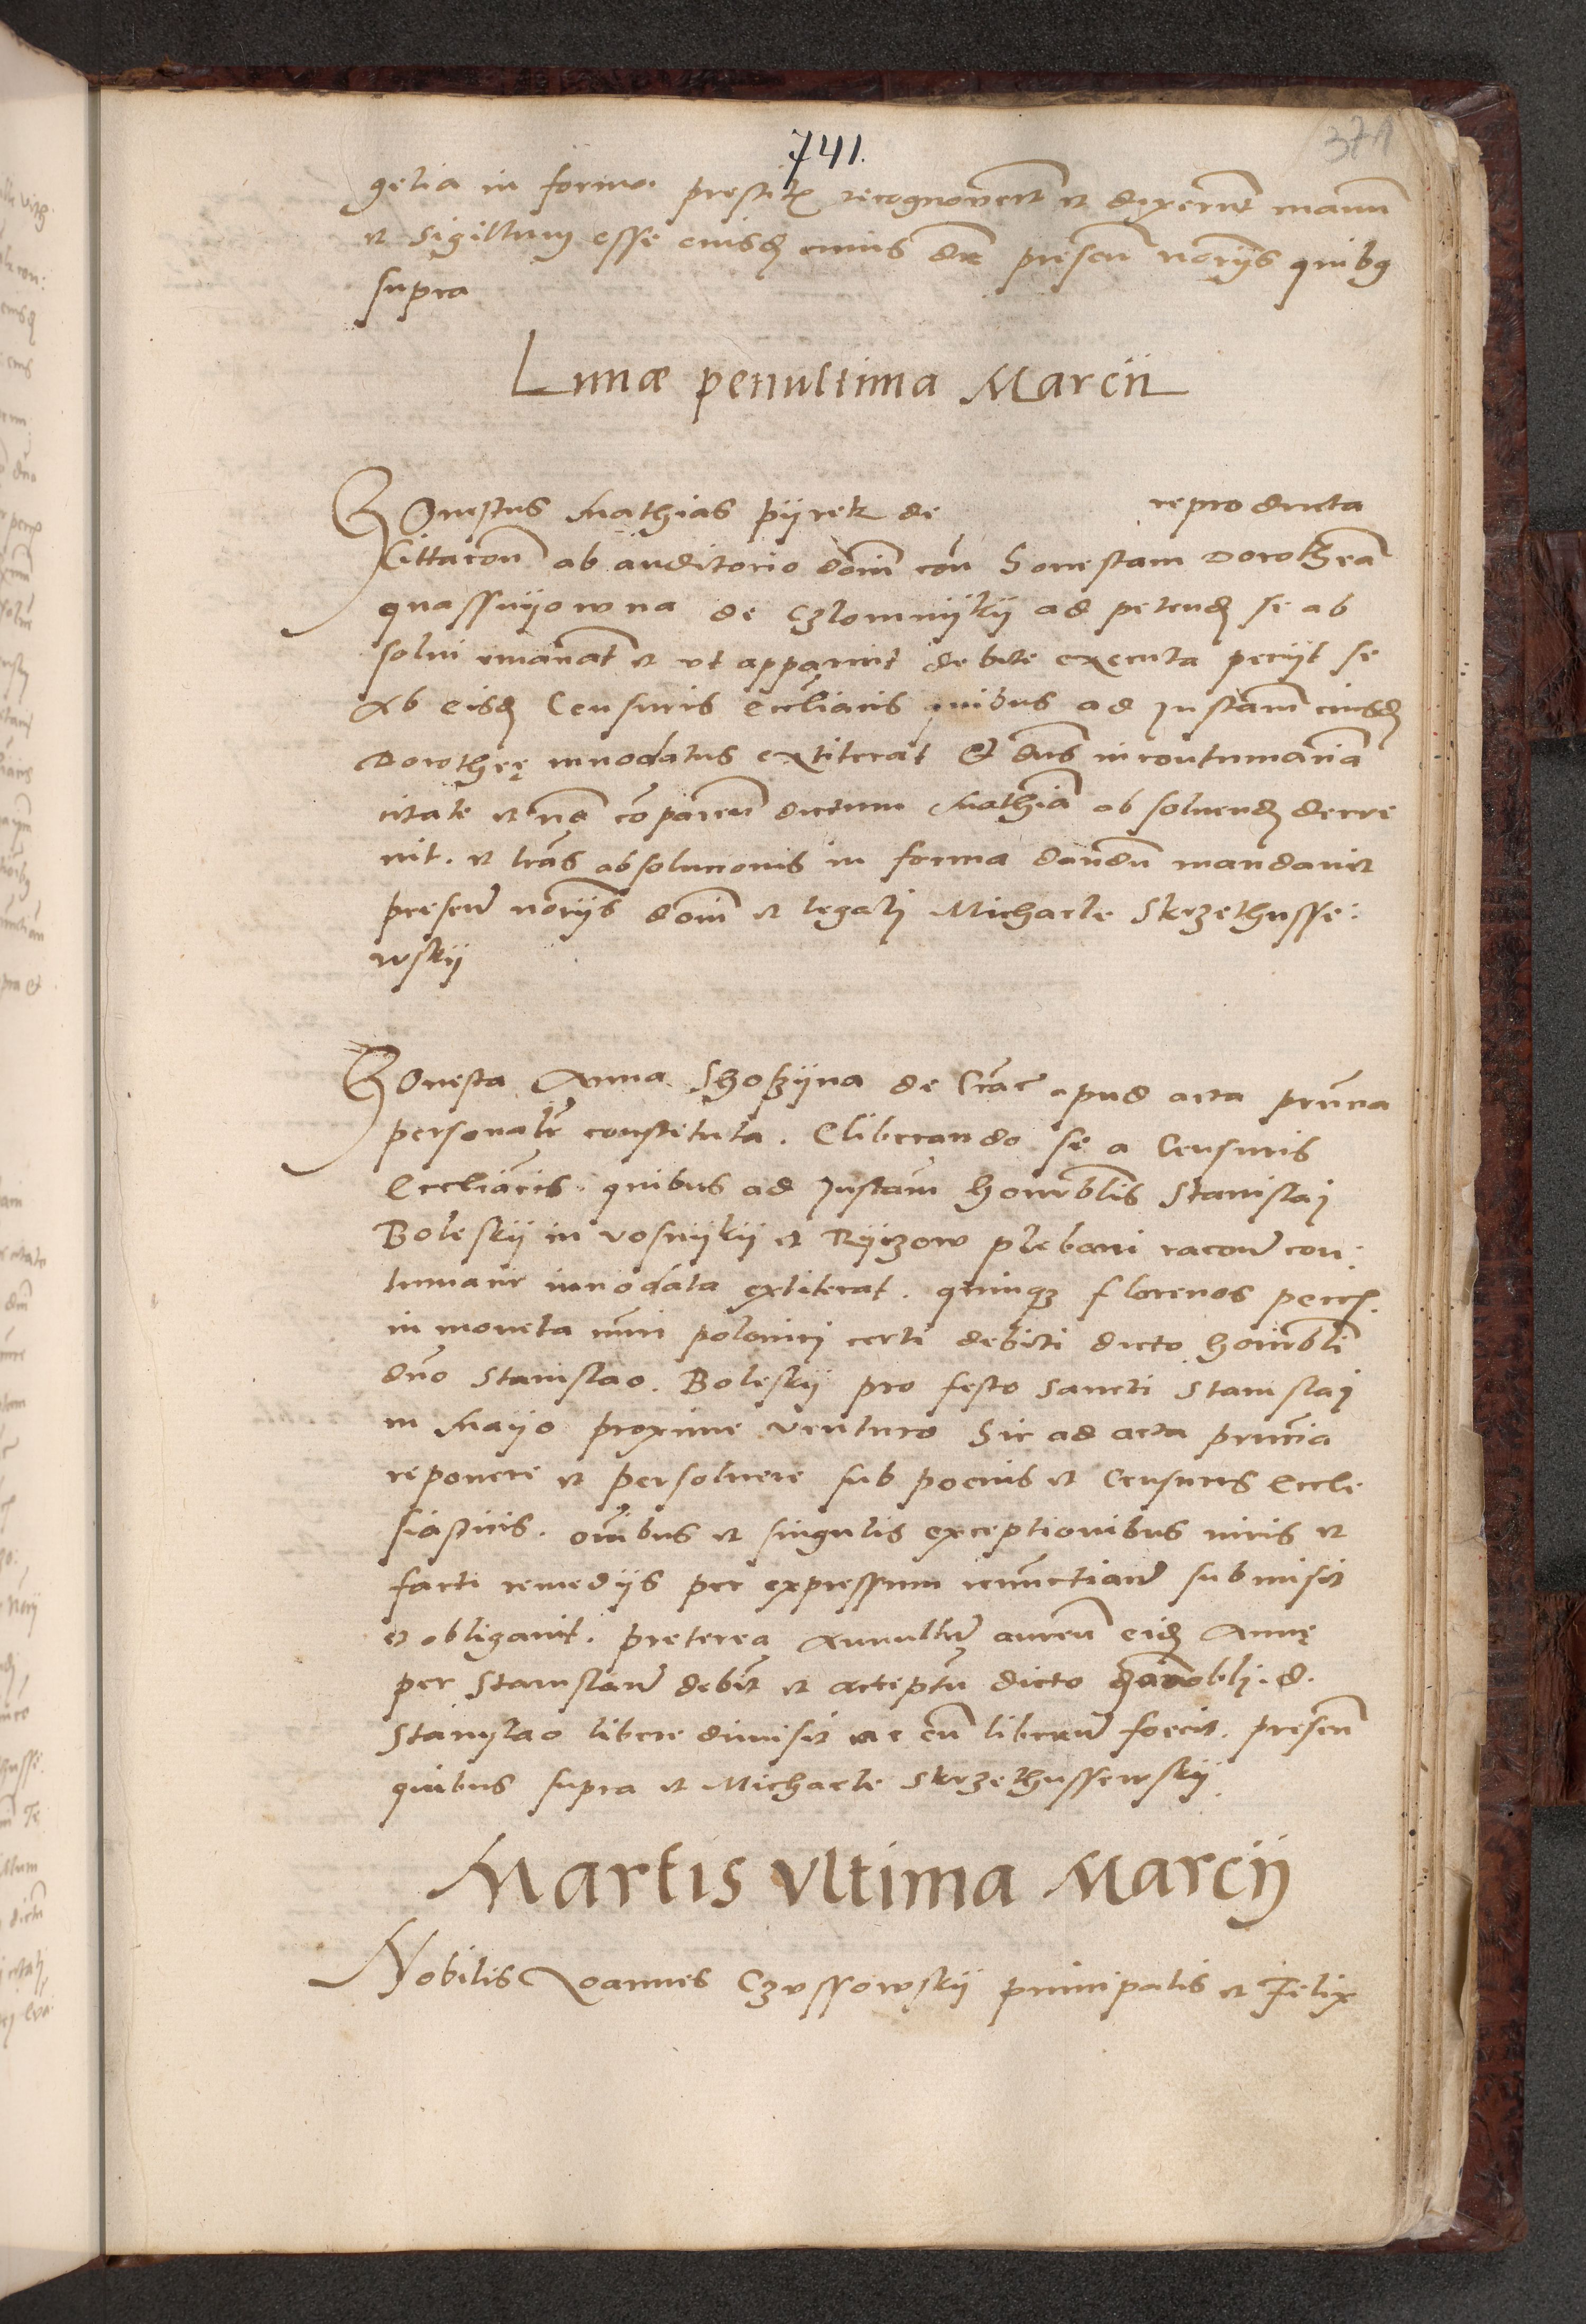 741.
371
gelia in forma prestit recognoverunt et dixerunt manum
et Sigillum esse eiusd cuius dne presen noriis quibus
supra
Lunæ penultima Marcii
Honestus Mathias pyrek de reproducta
Cittacon ab auditorio domi con honestam Dorotheam
quassnyowna de Czlomnykij ad petend se ab
solui emanat et vt apparuit debite executa peciit se
Ab eisd Censuris eccliacis quibus ad Instam eiusd
Dorotheę innodatus extiterat Et dns in contumaciam
citate et no comparen dictum Mathia absoluend decre
uit. et lras absolucionis in forma dandu mandauit
presen noriis domi et legali Michaele Skrzethusse:
wskij
Honesta Anna Shoszijna de Crac apud acta prnna
personalr constituta. Eliberando se a Censuris
Eccliacis quibus ad Instam honorblis Stanislai
Boleskij in vosnijkij et Ryczow plebani racone con:
tumacie innodata extiterat. quinqz florenos pecc.
in moneta nuri polonici certi debiti dicto honorbli
dno Stanislao. Boleskij pro festo Sancti Stanislai
in Mayo proxime venturo Sic ad acta prncia
reponere et persoluere sub poenis et Censuris Eccle
siasticis. omibus et singulis exceptionibus iuris et
facti remediis per expressum renunctiane submisit
et obligauit. preterea Annullum aureu eid Annę
per Stanislaum debit et acceptu dicto honobli. d.
Stanislao libere dimisit ac eu liberum foecit. presen
quibus supra et Michaele Skrzethussewskij.
Martis vltima Marcij
Nobilis Ioannes Czvssowskij principalis et Felix